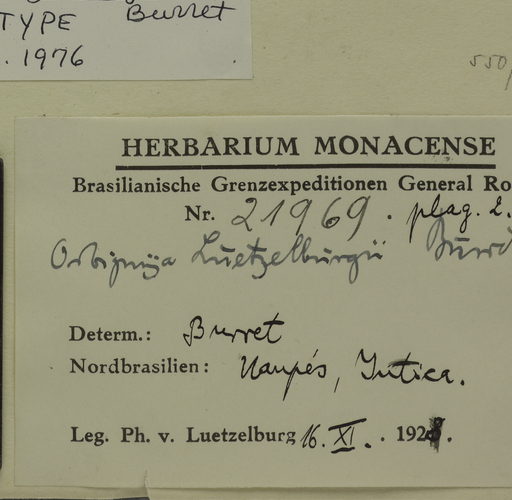 TYPE Burret
. 1976
550
HERBARIUM MONACENSE
Brasilianische Grenzexpeditionen General Ro
Nr. 21969. plag. 2.
Orbignya Luetzelburgii Burr
Determ.: Burret
Nordbrasilien: Uaupés, Jutica.
Leg. Ph. v. Luetzelburg 16. XI. . 1928.